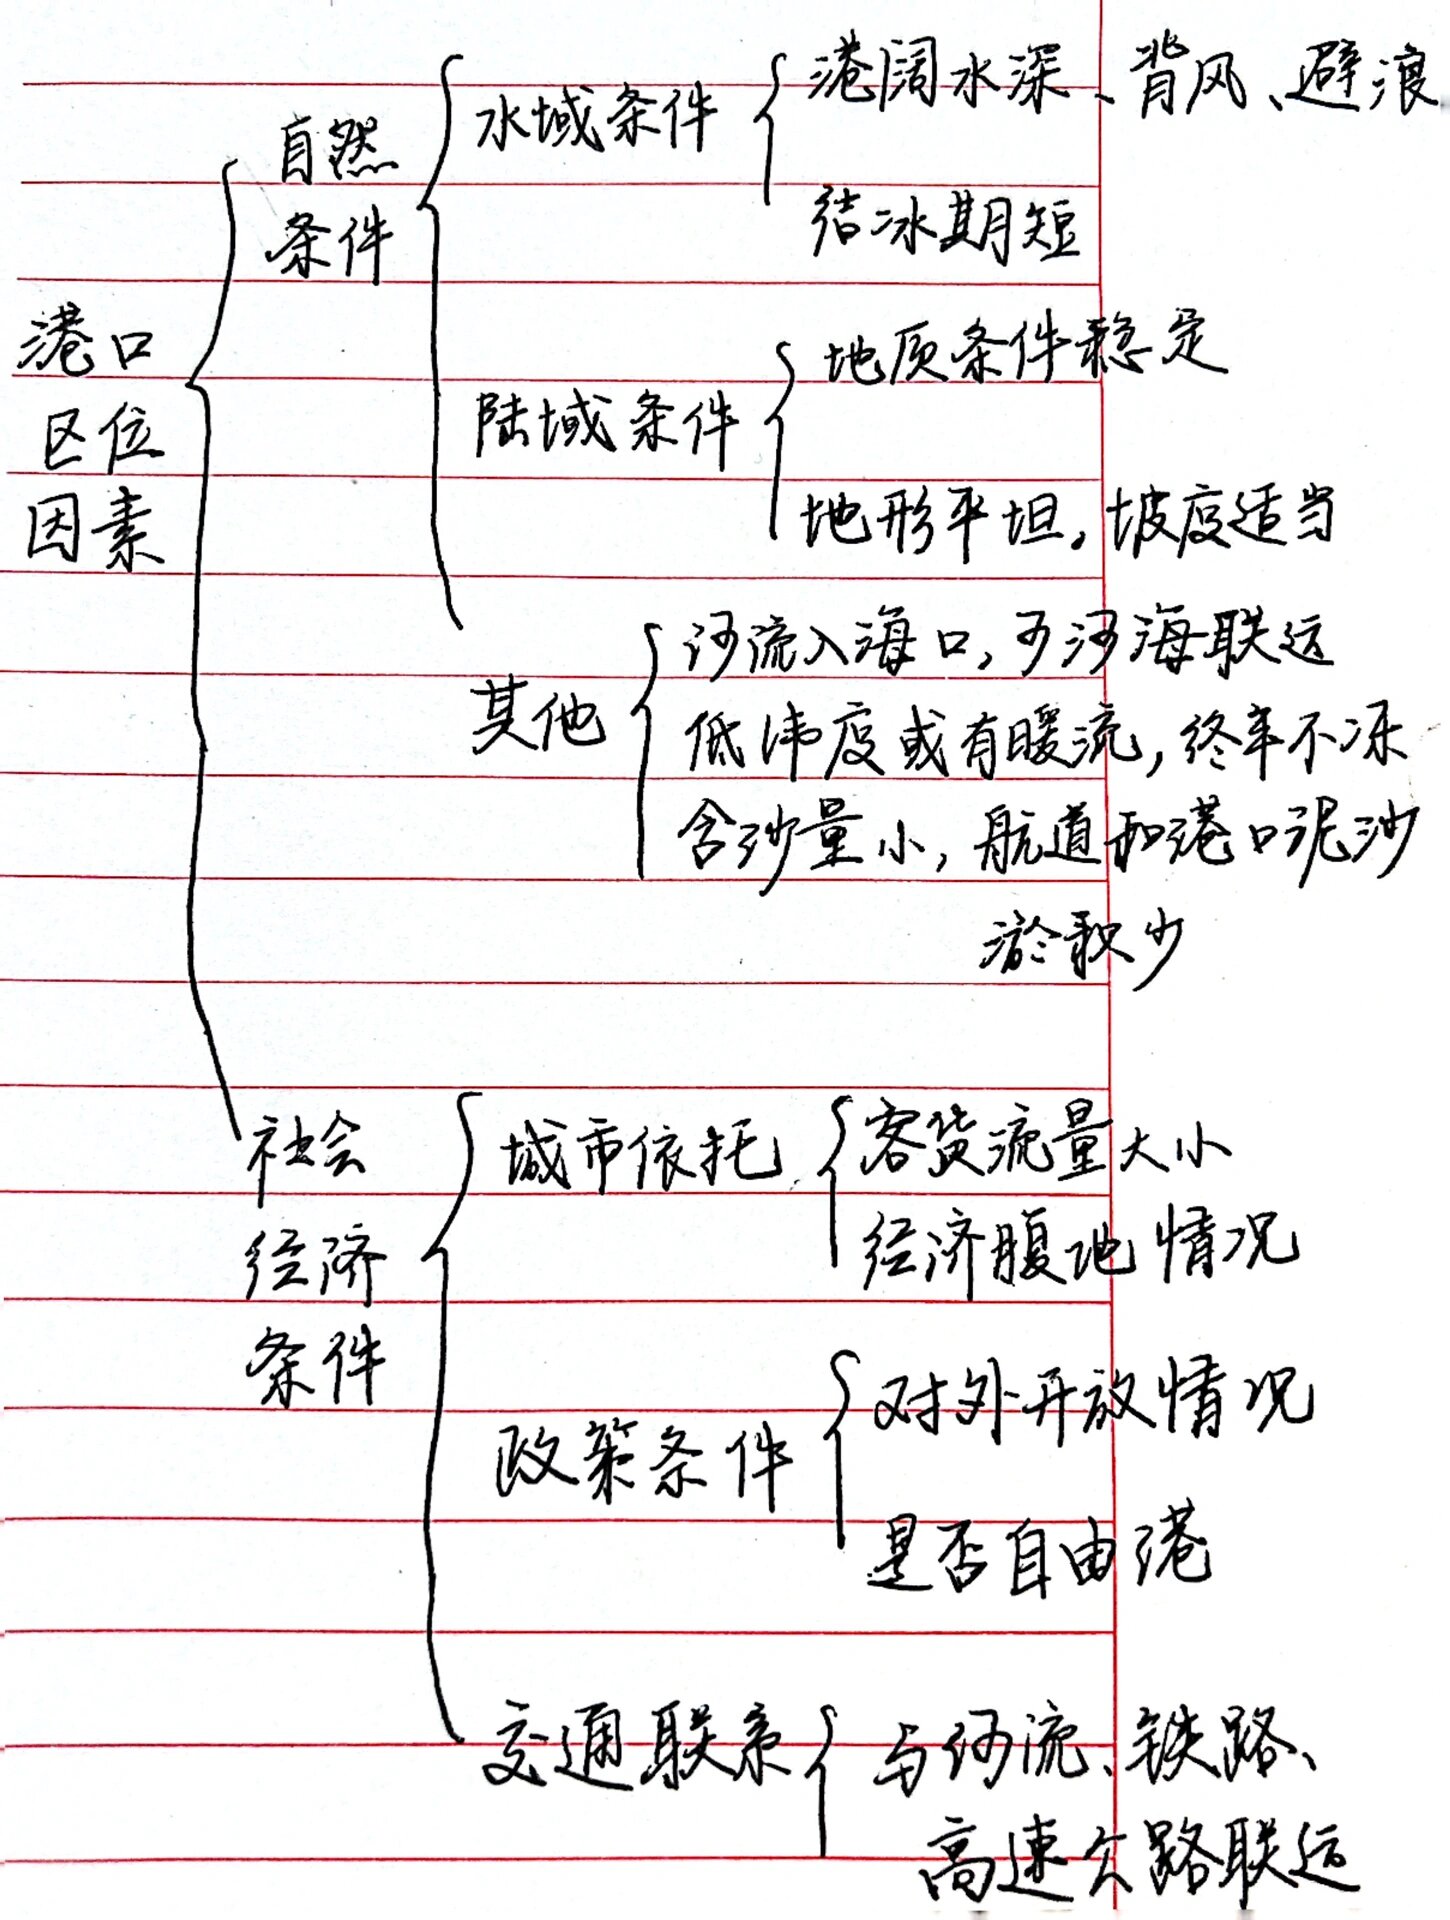 港口
区位
因素
自然
条件
水域条件
港阔水深、背风、避浪
结冰期短
陆域条件
地质条件稳定
地形平坦，坡度适当
其他
河流入海口，可河海联运
低纬度或有暖流，终年不冻
含沙量小，航道和港口泥沙
淤积少
社会
经济
条件
城市依托
客货流量大小
经济腹地情况
政策条件
对外开放情况
是否自由港
交通联系
与河流、铁路、
高速公路联运